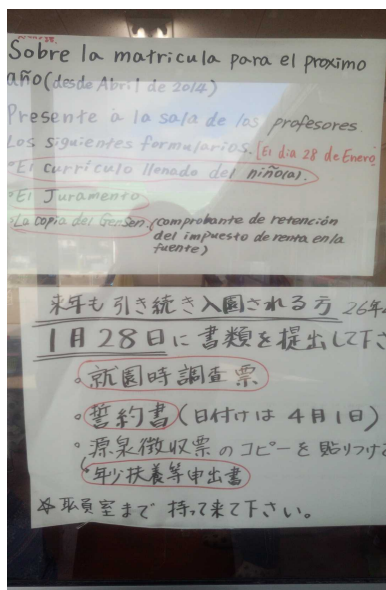 Sobre la matricula para el proximo
año (desde Abril de 2014)
Presente a la sala de los profesores
Los siguientes formularios. [El dia 28 de Enero]
•El currículo llenado del niño(a).
•El Juramento
•La copia del Gensen (comprobante de retención
del impuesto de renta en la
fuente)
来年も引き続き入園される方 26年
1月28日に書類を提出して下さ
。就園時調査票
。誓約書(日付けは4月1日)
・源泉徴収票のコピーを貼りつけ
年少扶養等申出書
☆職員室まで持って来て下さい。